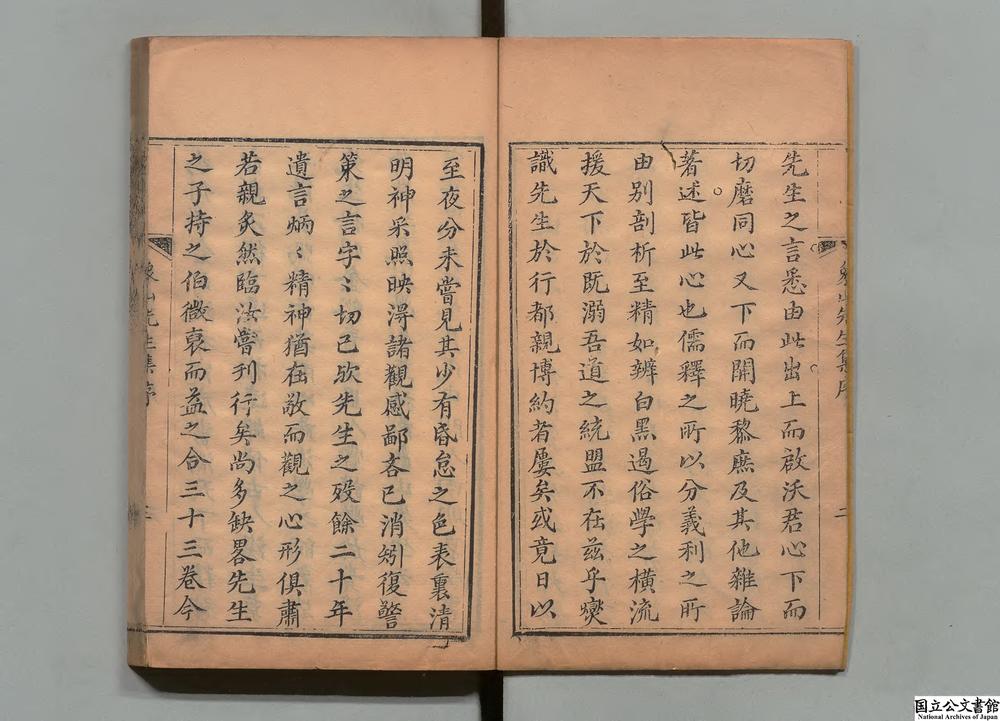 先生之言悉由此出上而啟沃君心下而
切磨同心又下而開曉黎庶及其他雜論
著述皆此心也儒釋之所以分義利之所
由別剖析至精如辨白黑遏俗學之橫流
援天下於既溺吾道之統盟不在兹乎爕
識先生於行都親博約者屢矣或竟日以
至夜分未嘗見其少有昏怠之色表裏清
明神采照映淂諸觀感鄙吝已消矧復警
策之言字〻切已欤先生之歿餘二十年
遺言炳〻精神猶在敬而觀之心形俱肅
若親炙然臨汝嘗刊行矣尚多缺畧先生
之子持之伯微裒而益之合三十三卷今
象山先生集序
二
象山先生集序
三
国立公文書館
National Archives of Japan